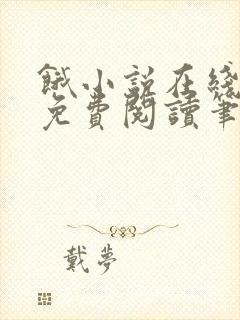 餓小説在綫
免費閱讀筆
戴夢